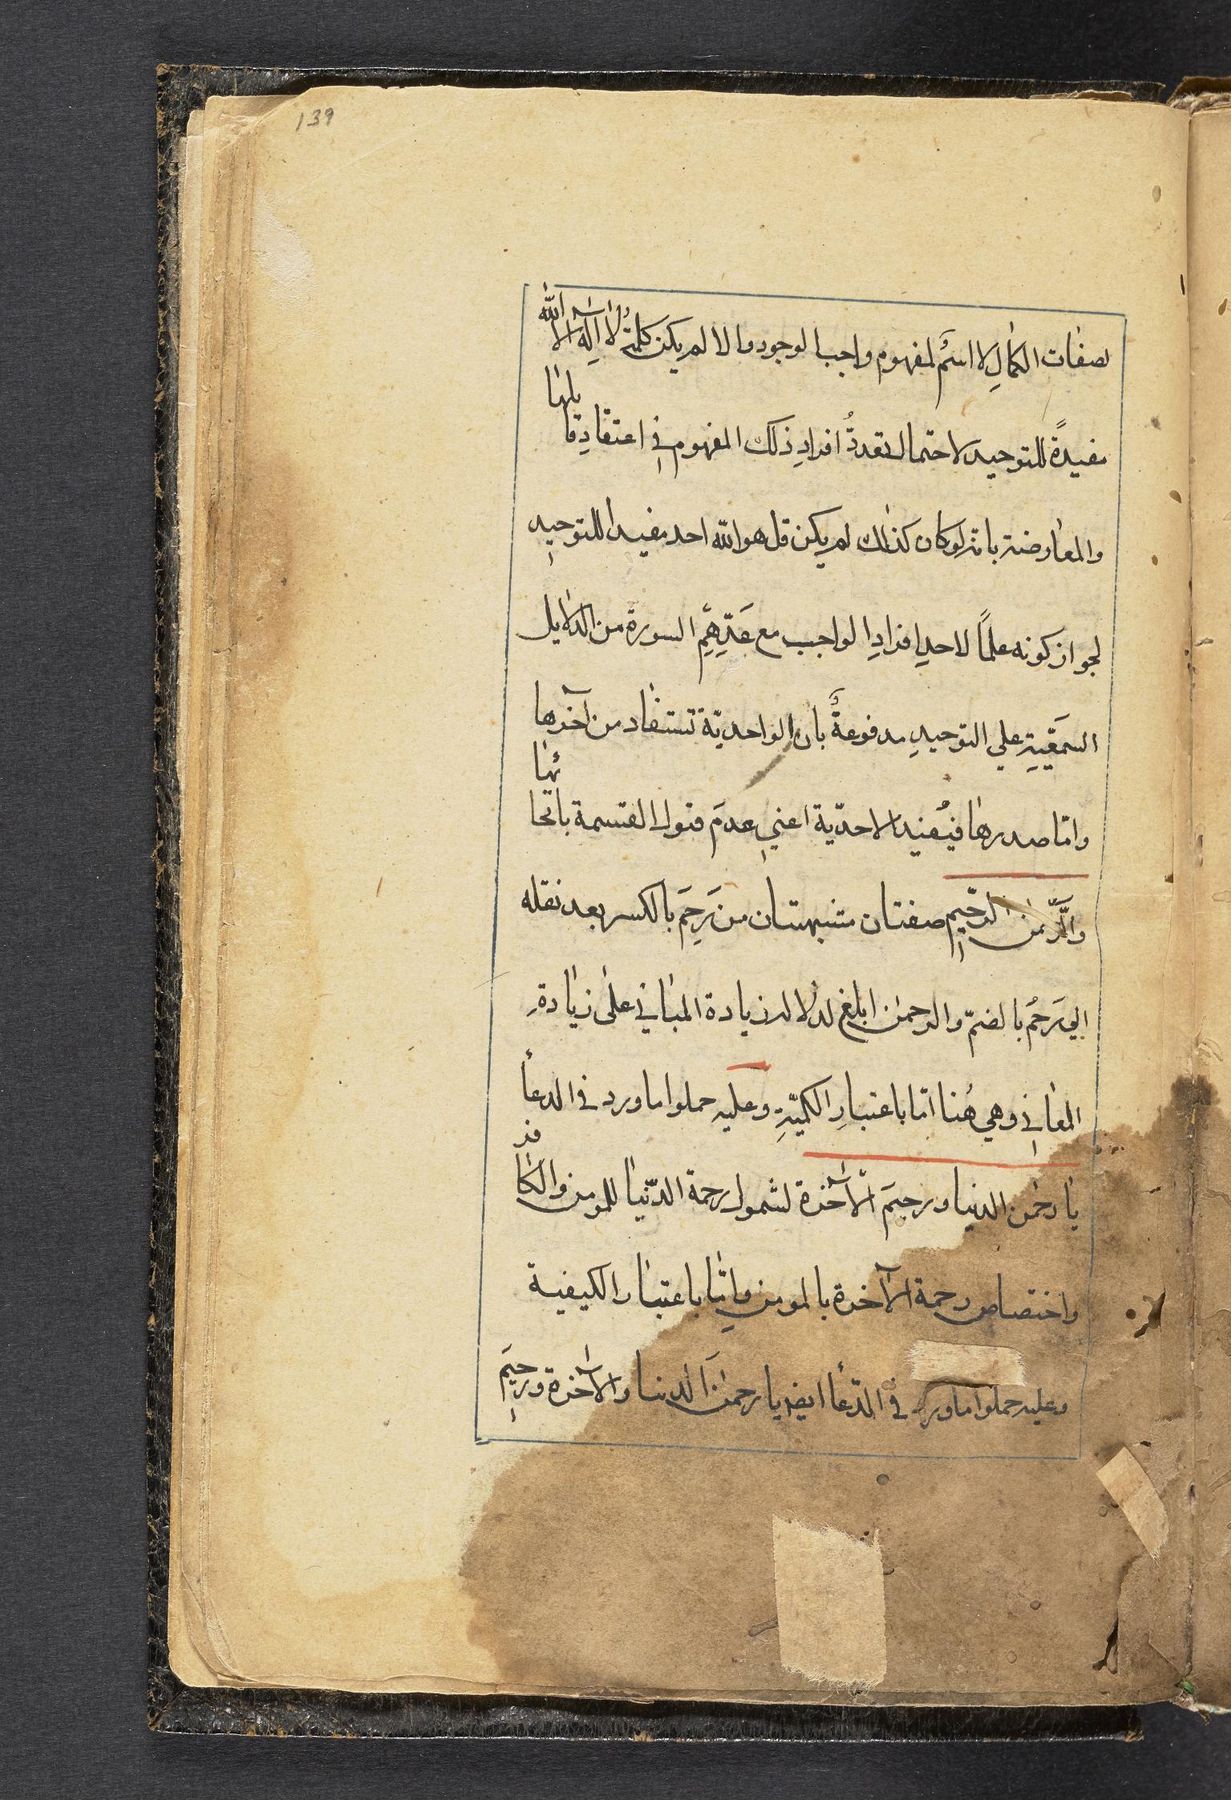 139
لصفات الكمالِ لا اسمٌ لمفهوم واجب الوجود والا لم يكن كلمةُ لا اِله الا الله
مفيدةً للتوحيد لاحتمال تعددُ افرادِ ذلك المفهوم في اعتقادِ قايلها
والمعارضة بانه لو كان كذلك لم يكن قل هو الله احد مفيدا للتوحيد
لجواز كونه علماً لاحد افرادِ الواجب مع عَدِّهِمِ السورة من الدلايل
السمعَيّةِ علي التوحيدِ مدفوعةٌ بان الواحديّة تستفاد من آخرها
وامّا صدرها فيُفيد الاحديّة اعني عدمَ قبول القسمة بانحائها
والرَّحمن الرحّيم صفتان مشبهتان من رَحِمَ بالكسر بعد نقله
الي رَحُم بالضمّ والرحمن ابلغ لدلالة زيادة المباني على زيادةِ
المعاني وهي هُنا امّا باعتبارِ الكميّةِ وعليه حملوا ما ورد في الدعأ
يا رحمن الدنيا ورحيمَ الآخرة لشمول رحمة الدّنيا للمومن والكافر
واختصاص رحمة الآخرة بالمومن وامّا باعتبار الكيفية
وعليه حملوا ما ورد في الدّعأ ايضا يا رحمنَ الدنيا والآخرة ورحيمَ